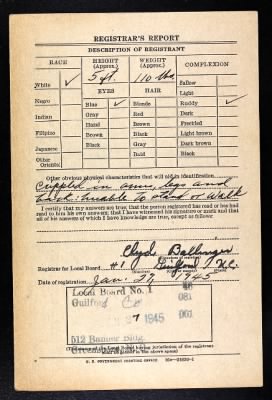 REGISTRAR'S REPORT
DESCRIPTION OF REGISTRANT
RACE
HEIGHT
(Approx.)
WEIGHT
(Approx.)
COMPLEXION
5 ft.
110 lbs
White ✓
EYES
HAIR
Sallow
Light
Negro
Blue ✓
Blonde
Ruddy ✓
Indian
Gray
Red
Dark
Hazel
Brown
Freckled
Filipino
Brown
Black
Light brown
Japanese
Black
Gray
Dark brown
Other
Oriental
Bald
Black
Other obvious physical characteristics that will aid in identification
Crippled in arms, legs and
back. Unable to stand or walk
I certify that my answers are true; that the person registered has read or has had
read to him his own answers; that I have witnessed his signature or mark and that
all of his answers of which I have knowledge are true, except as follows:
Clyde Ballinger
Registrar for Local Board #1 Guilford N.C.
Date of registration Jan. 1945
Local Board No. 1
Guilford
1945
512 Banner Bldg.
U. S. GOVERNMENT PRINTING OFFICE